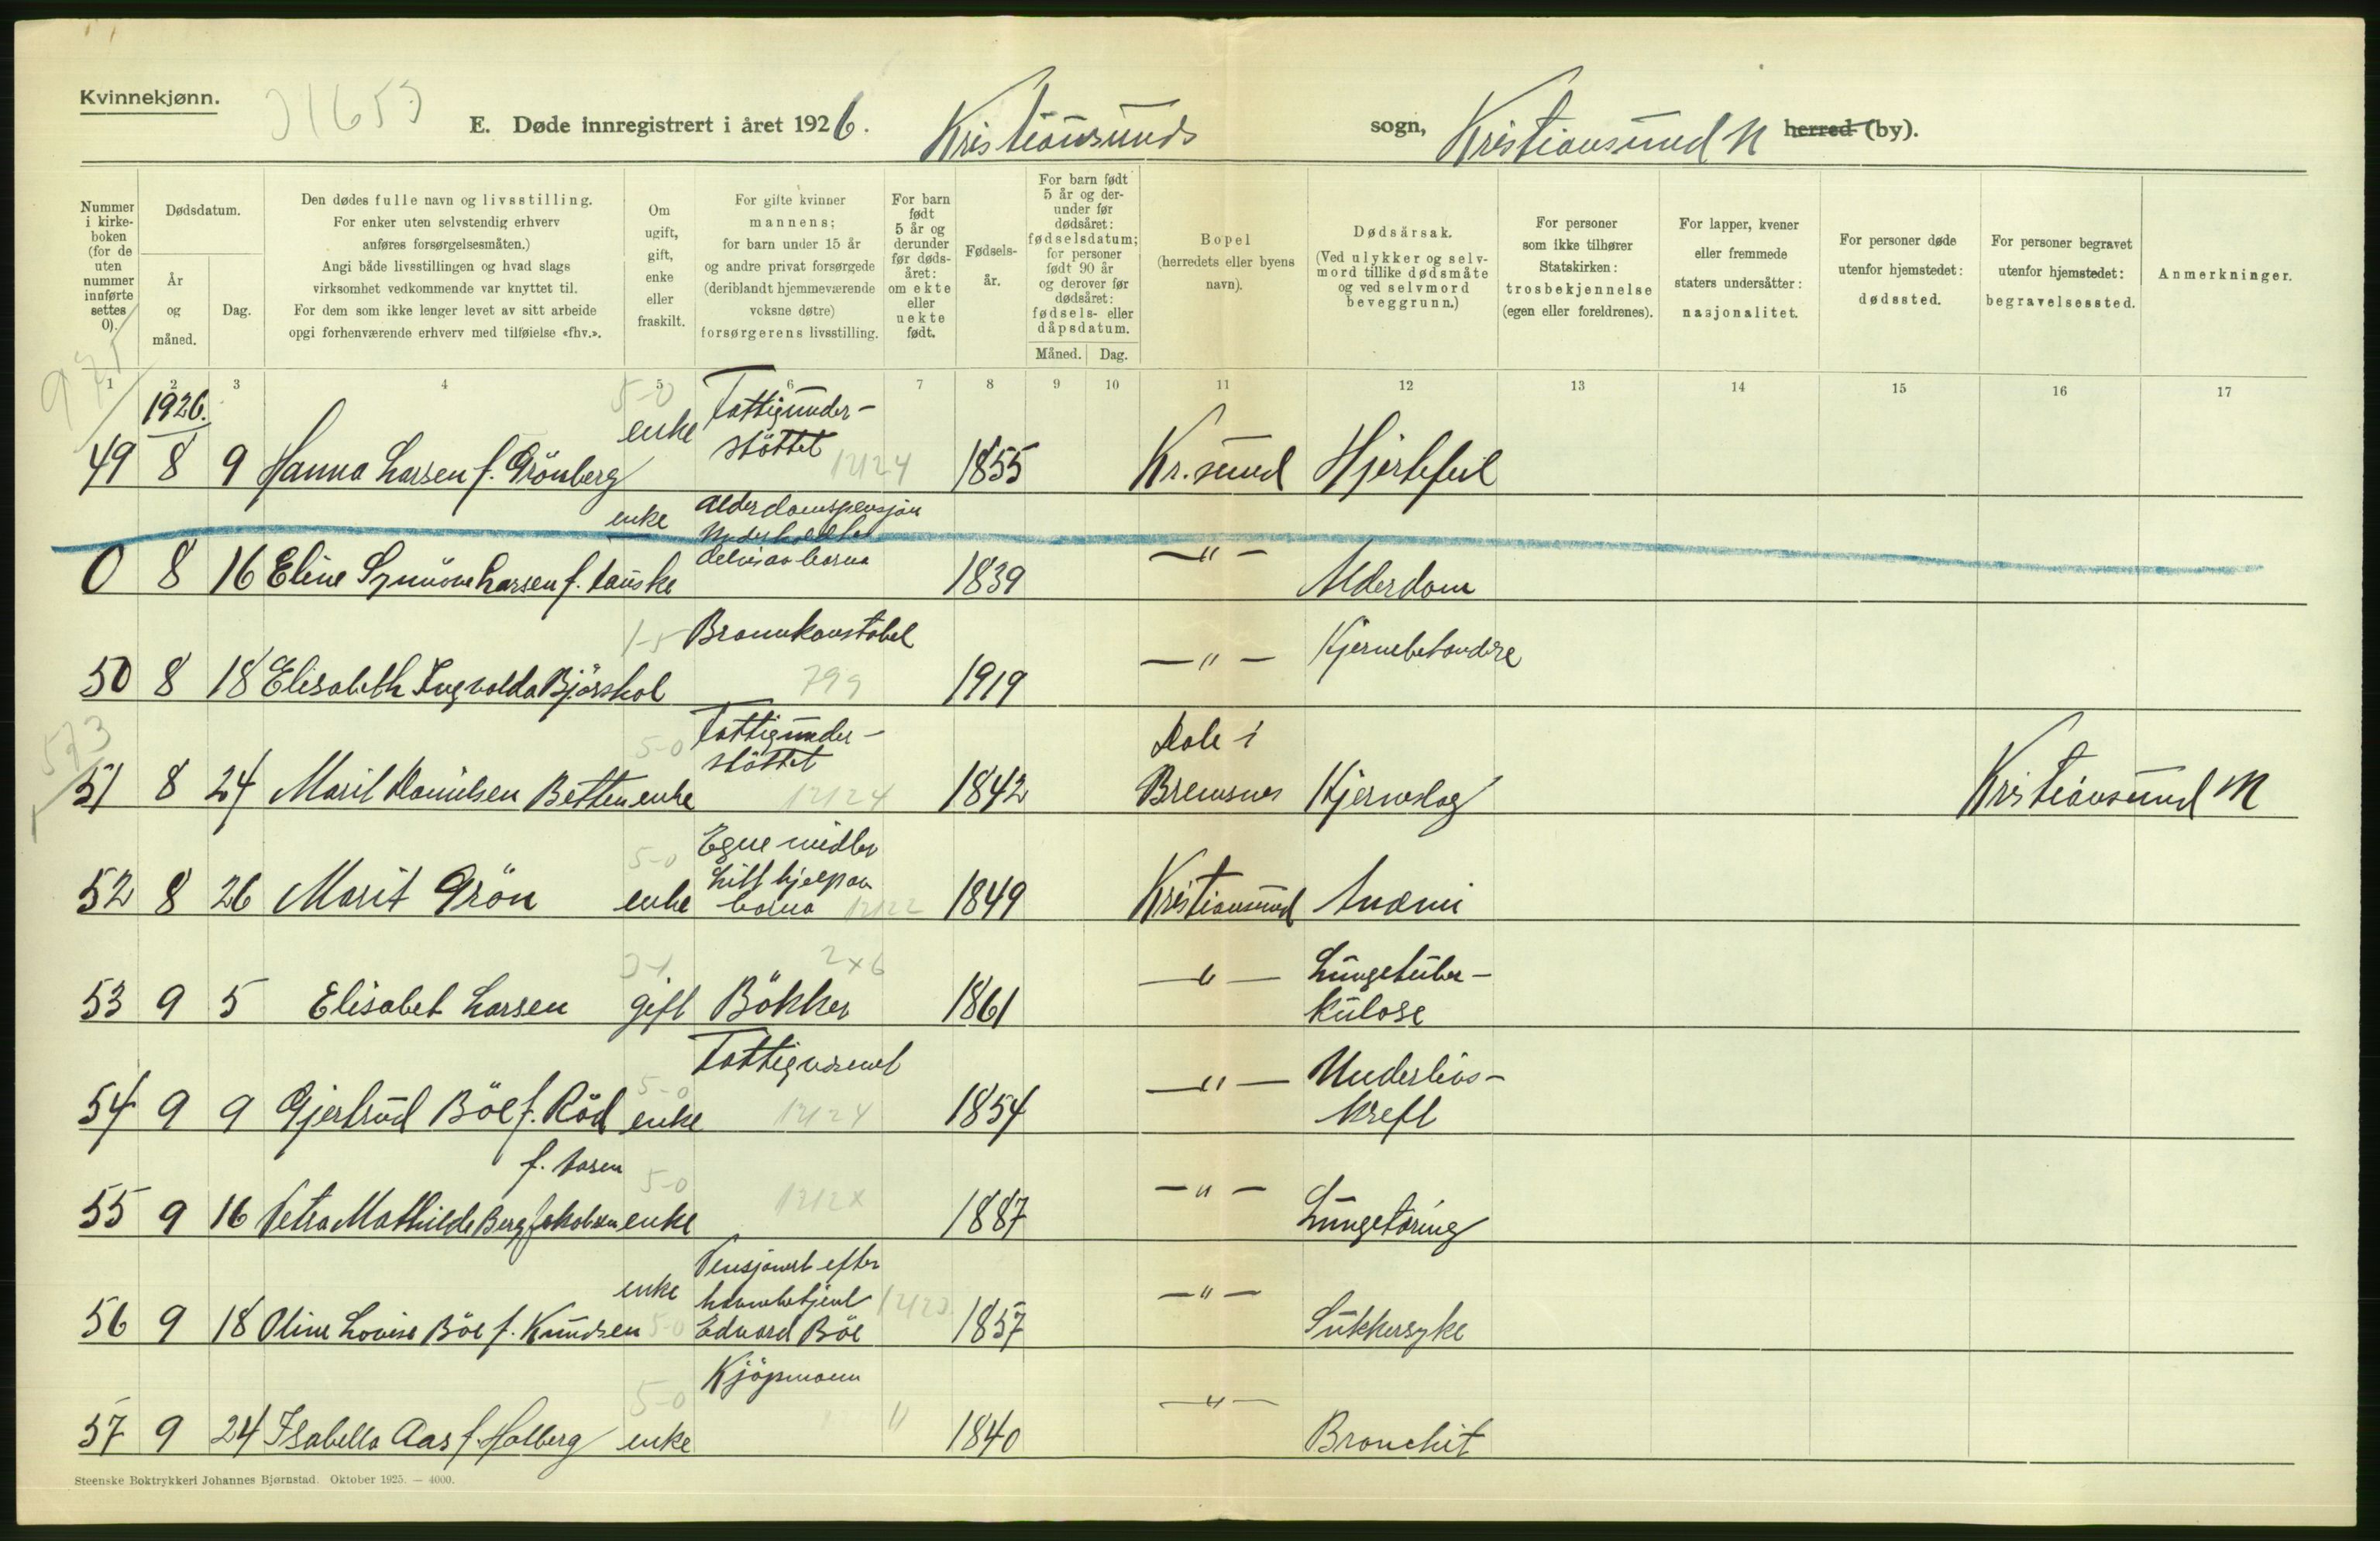 Kvinnekjønn.
E. Døde innregistrert i året 1926. Kristiansunds sogn, Kristiansund N herred (by).
Nummer i kirkeboken (for de uten nummer innførte settes 0).
Dødsdatum.
År og måned.
Dag.
Den dødes fulle navn og livsstilling.
For enker uten selvstendig erhverv
anføres forsørgelsesmåten.)
Angi både livsstillingen og hvad slags
virksomhet vedkommende var knyttet til.
For dem som ikke lenger levet av sitt arbeide
opgi forhenværende erhverv med tilføielse «fhv.».
Om ugift, gift, enke eller fraskilt.
For gifte kvinner
mannens;
for barn under 15 år
og andre privat forsørgede
(deriblandt hjemmeværende
voksne døtre)
forsørgerens livsstilling.
For barn født 5 år og derunder før dødsåret: om ekte eller uekte født.
Fødselsår.
For barn født 5 år og derunder før dødsåret: fødselsdatum; for personer født 90 år og derover før dødsåret: fødsels- eller dåpsdatum.
Måned. Dag.
Bopel
(herredets eller byens
navn).
Dødsårsak.
(Ved ulykker og selvmord tillike dødsmåte og ved selvmord beveggrunn.)
For personer
som ikke tilhører
Statskirken:
trosbekjennelse
(egen eller foreldrenes).
For lapper, kvener
eller fremmede
staters undersåtter:
nasjonalitet.
For personer døde
utenfor hjemstedet:
dødssted.
For personer begravet
utenfor hjemstedet:
begravelsessted.
Anmerkninger.
1 2 3 4 5 6 7 8 9 10 11 12 13 14 15 16 17
1926.
49 8 9 Hanna Larsen f. Grönberg enke Fattigunder-
stöttet 12124 1855 Kr.sund Hjertefeil
0 8 16 Eline Synnöve Larsen f. Lauske enke Alderdomspensjon
Underholdt
delvis av barna 1839 —"— Alderdom
50 8 18 Elisabeth Ingvalda Bjørskol Brannkonstabel
799 1919 —"— Hjernebetendelse
51 8 24 Marit Danielsen Betten enke Fattigunder-
stöttet 12124 1842 Dale i
Bremsnes Hjerneslag Kristiansund N
52 8 26 Marit Grön enke Egne midler
Litt hjelp av
barna 12122 1849 Kristiansund Anæmi
53 9 5 Elisabet Larsen gift Bökker 1861 —"— Lungetuber-
kulose
54 9 9 Gjertrud Böe f. Röd enke Fattigvesenet
12124 1854 —"— Underlivs-
kreft
f. Aasen
55 9 16 Petra Mathilde Berg Jakobsen enke 1887 —"— Lungetæring
56 9 18 Oline Lovise Böe f. Knudsen enke Pensjonert efter
havnebetjent
Edvard Böe 1857 —"— Sukkersyke
57 9 24 Isabella Aas f. Holberg enke Kjöpmann " 1840 —"— Bronchit
Steenske Boktrykkeri Johannes Bjørnstad. Oktober 1925. — 4000.